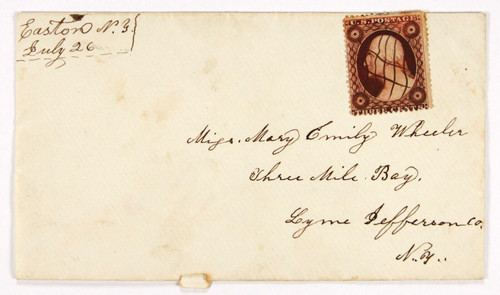 Easton N.Y.
July 26
U.S. POSTAGE
THREE CENTS
Miss. Mary Emily Wheeler
Three Mile Bay.
Lyme Jefferson Co.
N.Y.